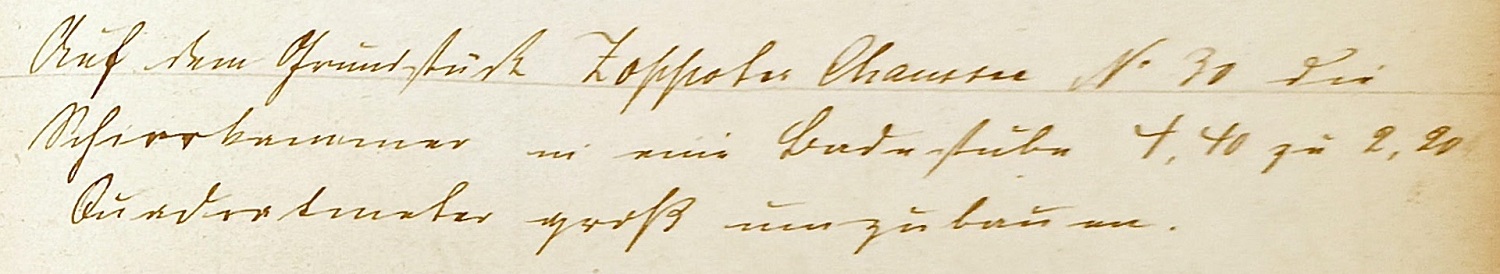 Auf dem Grundstück Zoppoter Chaussee N. 30 die
Schirrkammer in eine Badestube 4,40 zu 2,20
Quadratmeter groß umzubauen.